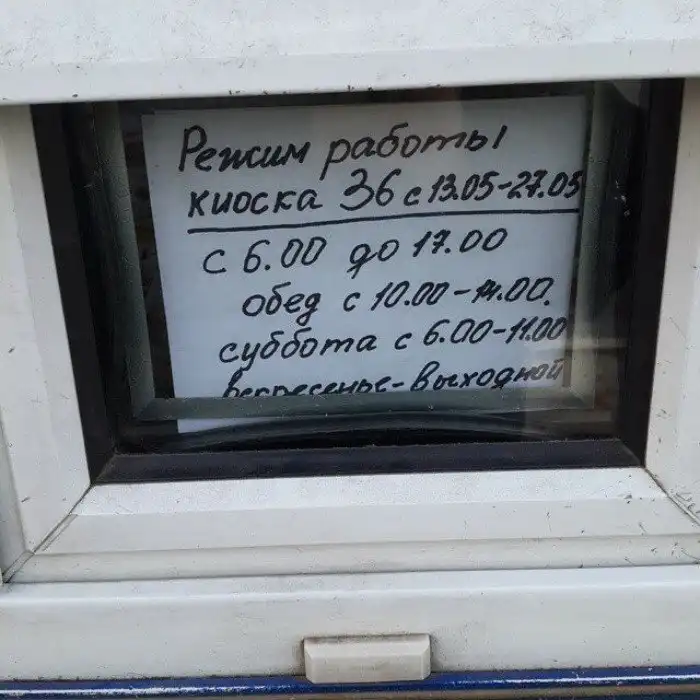 Режим работы
киоска 36 с 13.05-27.05
с 6.00 до 17.00
обед с 10.00-14.00.
суббота с 6.00-11.00
Воскресенье-Выходной